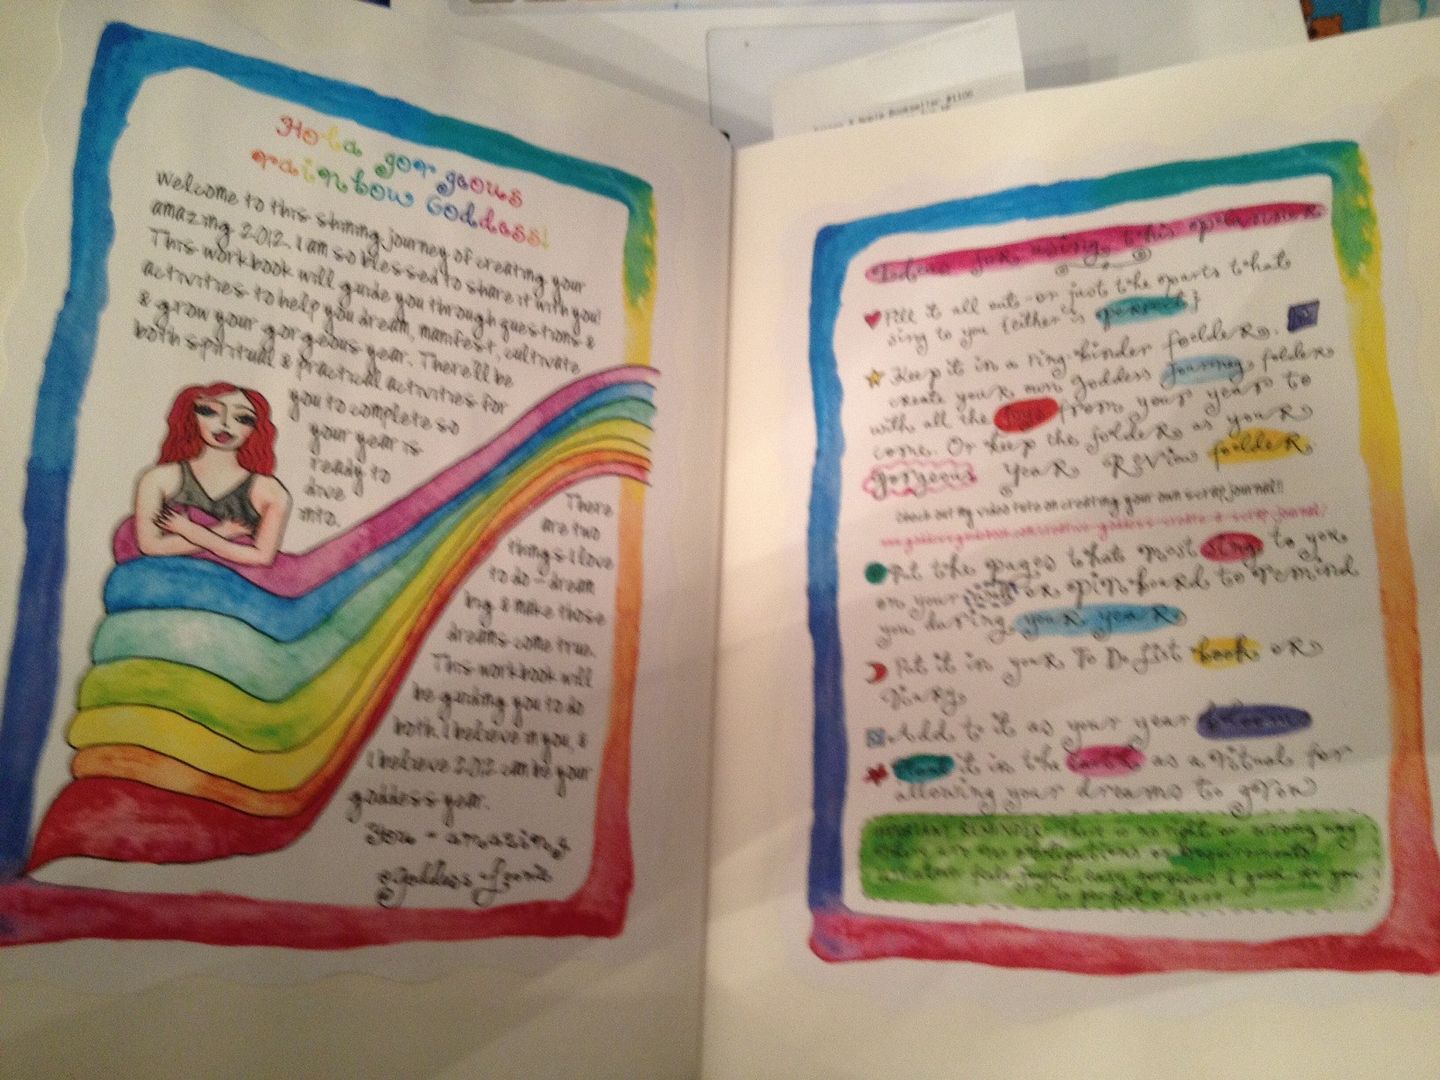 Hola gorgeous
rainbow Goddess!
Welcome to this shining journey of creating your
amazing 2012. I am so blessed to share it with you!
This workbook will guide you through questions &
activities to help you dream, manifest, cultivate
& grow your gorgeous year. There'll be
both spiritual & practical activities for
you to complete so
your year is
ready to
dive
into.
There
are two
things I love
to do - dream
ing & make those
dreams come true.
This workbook will
be guiding you to do
both. I believe in you, &
I believe 2012 can be your
goddess year.
You - amazing
Goddess
Ideas for using this
Fill it all out - or just the parts that
sing to you {either is perfect}
Keep it in a ring-binder folder.
create your own goddess journey folder
with all the from your year to
come. Or keep the folder as your
gorgeous year review folder
Check out my video tute on creating your own scrap journal!!
Put the pages that most sing to you
on your wall or pin-board to remind
you during your year
Put it in your To Do List book or
Diary
Add to it as your year blooms
Plant it in the Earth as a ritual for
allowing your dreams to grow
IMPORTANT REMINDER: There is no right or wrong way
There are no obligations or requirements
Whatever feels joyful, easy, gorgeous & good for you
is perfect